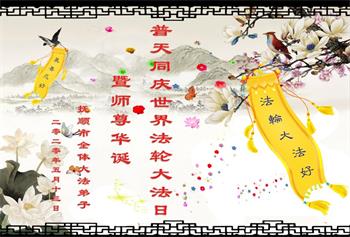 普天同庆世界法轮大法日
暨师尊华诞
抚顺市全体大法弟子
二零二零年五月十三日
法輪大法好
真善忍好